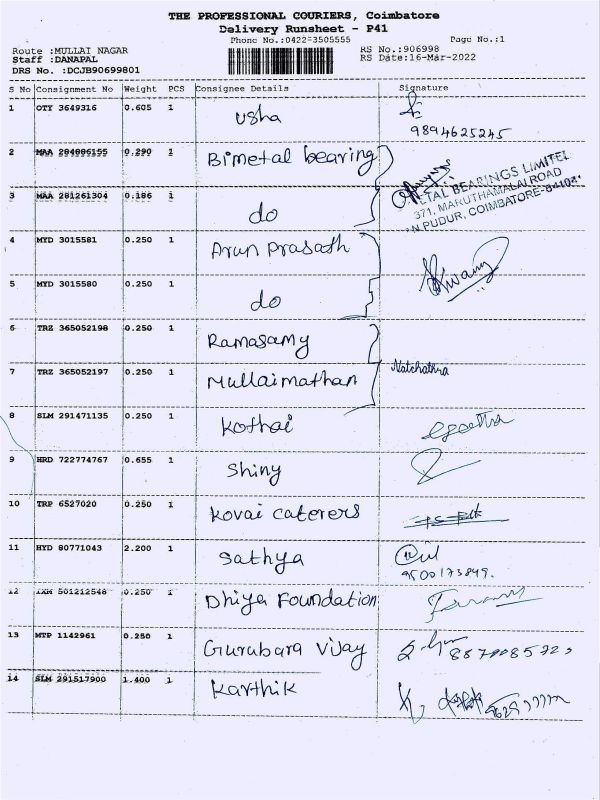 THE PROFESSIONAL COURIERS, Coimbatore
Delivery Runsheet - P41
Phone No.:0422-3505555
Page No.:1
Route :MULLAI NAGAR
RS No.:906998
Staff :DANAPAL
RS Date:16-Mar-2022
DRS No. :DCJB90699801
S No Consignment No Weight PCS Consignee Details Signature
1 OTY 3649316 0.605 1 Usha
9894625245
2 MAA 284886155 0.290 1 Bimetal bearing
3 MAA 281261304 0.186 1 do
ETAL BEARINGS LIMITED
371, MARUTHAMALAI ROAD
N PUDUR, COIMBATORE-
4 MYD 3015581 0.250 1 Arun Prasath
5 MYD 3015580 0.250 1 do
6 TRZ 365052198 0.250 1 Ramasamy
7 TRZ 365052197 0.250 1 Mullaimathan Natchathra
8 SLM 291471135 0.250 1 Kothai Geetha
9 HRD 722774767 0.655 1 Shiny
10 TRP 6527020 0.250 1 Kovai Caterers
11 HYD 80771043 2.200 1 Sathya
9500173849.
12 IXM 501212548 0.250 1 Dhiya Foundation
13 MTP 1142961 0.250 1 Gurubara Vijay
14 SLM 291517900 1.400 1 Karthik